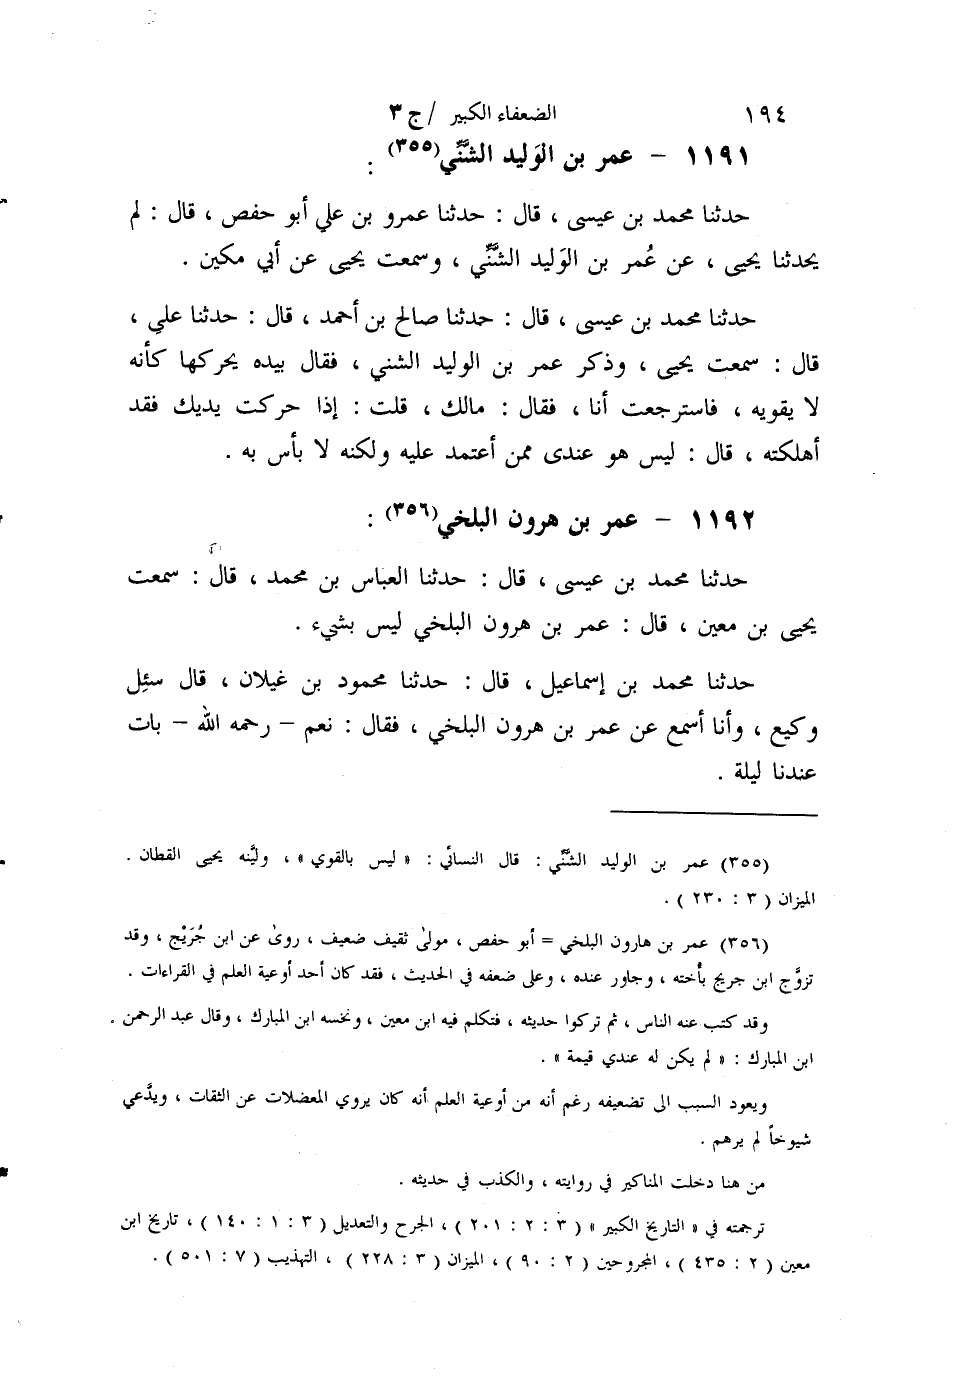 ١٩٤ الضعفاء الكبير /ج ٣
١١٩١ – عمر بن الوَليد الشَّنِّي(٣٥٥) :
حدثنا محمد بن عيسى ، قال : حدثنا عمرو بن علي أبو حفص ، قال : لم
يحدثنا يحيى ، عن عُمر بن الوَليد الشَّنِّي ، وسمعت يحيى عن أبي مكين .
حدثنا محمد بن عيسى ، قال : حدثنا صالح بن أحمد ، قال : حدثنا علي ،
قال : سمعت يحيى ، وذكر عمر بن الوليد الشني ، فقال بيده يحركها كأنه
لا يقويه ، فاسترجعت أنا ، فقال : مالك ، قلت : إذا حركت يديك فقد
أهلكته ، قال : ليس هو عندى ممن أعتمد عليه ولكنه لا بأس به .
١١٩٢ – عمر بن هرون البلخي(٣٥٦) :
حدثنا محمد بن عيسى ، قال : حدثنا العباس بن محمد ، قال : سمعت
يحيى بن معين ، قال : عمر بن هرون البلخي ليس بشيء .
حدثنا محمد بن إسماعيل ، قال : حدثنا محمود بن غيلان ، قال سئِل
وكيع ، وأنا أسمع عن عمر بن هرون البلخي ، فقال : نعم – رحمه الله – بات
عندنا ليلة .
(٣٥٥) عمر بن الوليد الشَّنِّي : قال النسائي : « ليس بالقوي » ، وليَّنه يحيى القطان .
الميزان ( ٣ : ٢٣٠ ) .
(٣٥٦) عمر بن هارون البلخي = أبو حفص ، مولىٰ ثقيف ضعيف ، روىٰ عن ابن جُرَيْج ، وقد
تزوَّج ابن جريج بأخته ، وجاور عنده ، وعلى ضعفه في الحديث ، فقد كان أحد أوعية العلم في القراءات .
وقد كتب عنه الناس ، ثم تركوا حديثه ، فتكلم فيه ابن معين ، ونخسه ابن المبارك ، وقال عبد الرحمن .
ابن المبارك : « لم يكن له عندي قيمة » .
ويعود السبب الى تضعيفه رغم أنه من أوعية العلم أنه كان يروي المعضلات عن الثقات ، ويدَّعي
شيوخاً لم يرهم .
من هنا دخلت المناكير في روايته ، والكذب في حديثه .
ترجمته في « التاريخ الكبير » ( ٣ : ٢ : ٢٠١ ) ، الجرح والتعديل ( ٣ : ١ : ١٤٠ ) ، تاريخ ابن
معين ( ٢ : ٤٣٥ ) ، المجروحين ( ٢ : ٩٠ ) ، الميزان ( ٣ : ٢٢٨ ) ، التهذيب ( ٧ : ٥٠١ ) .